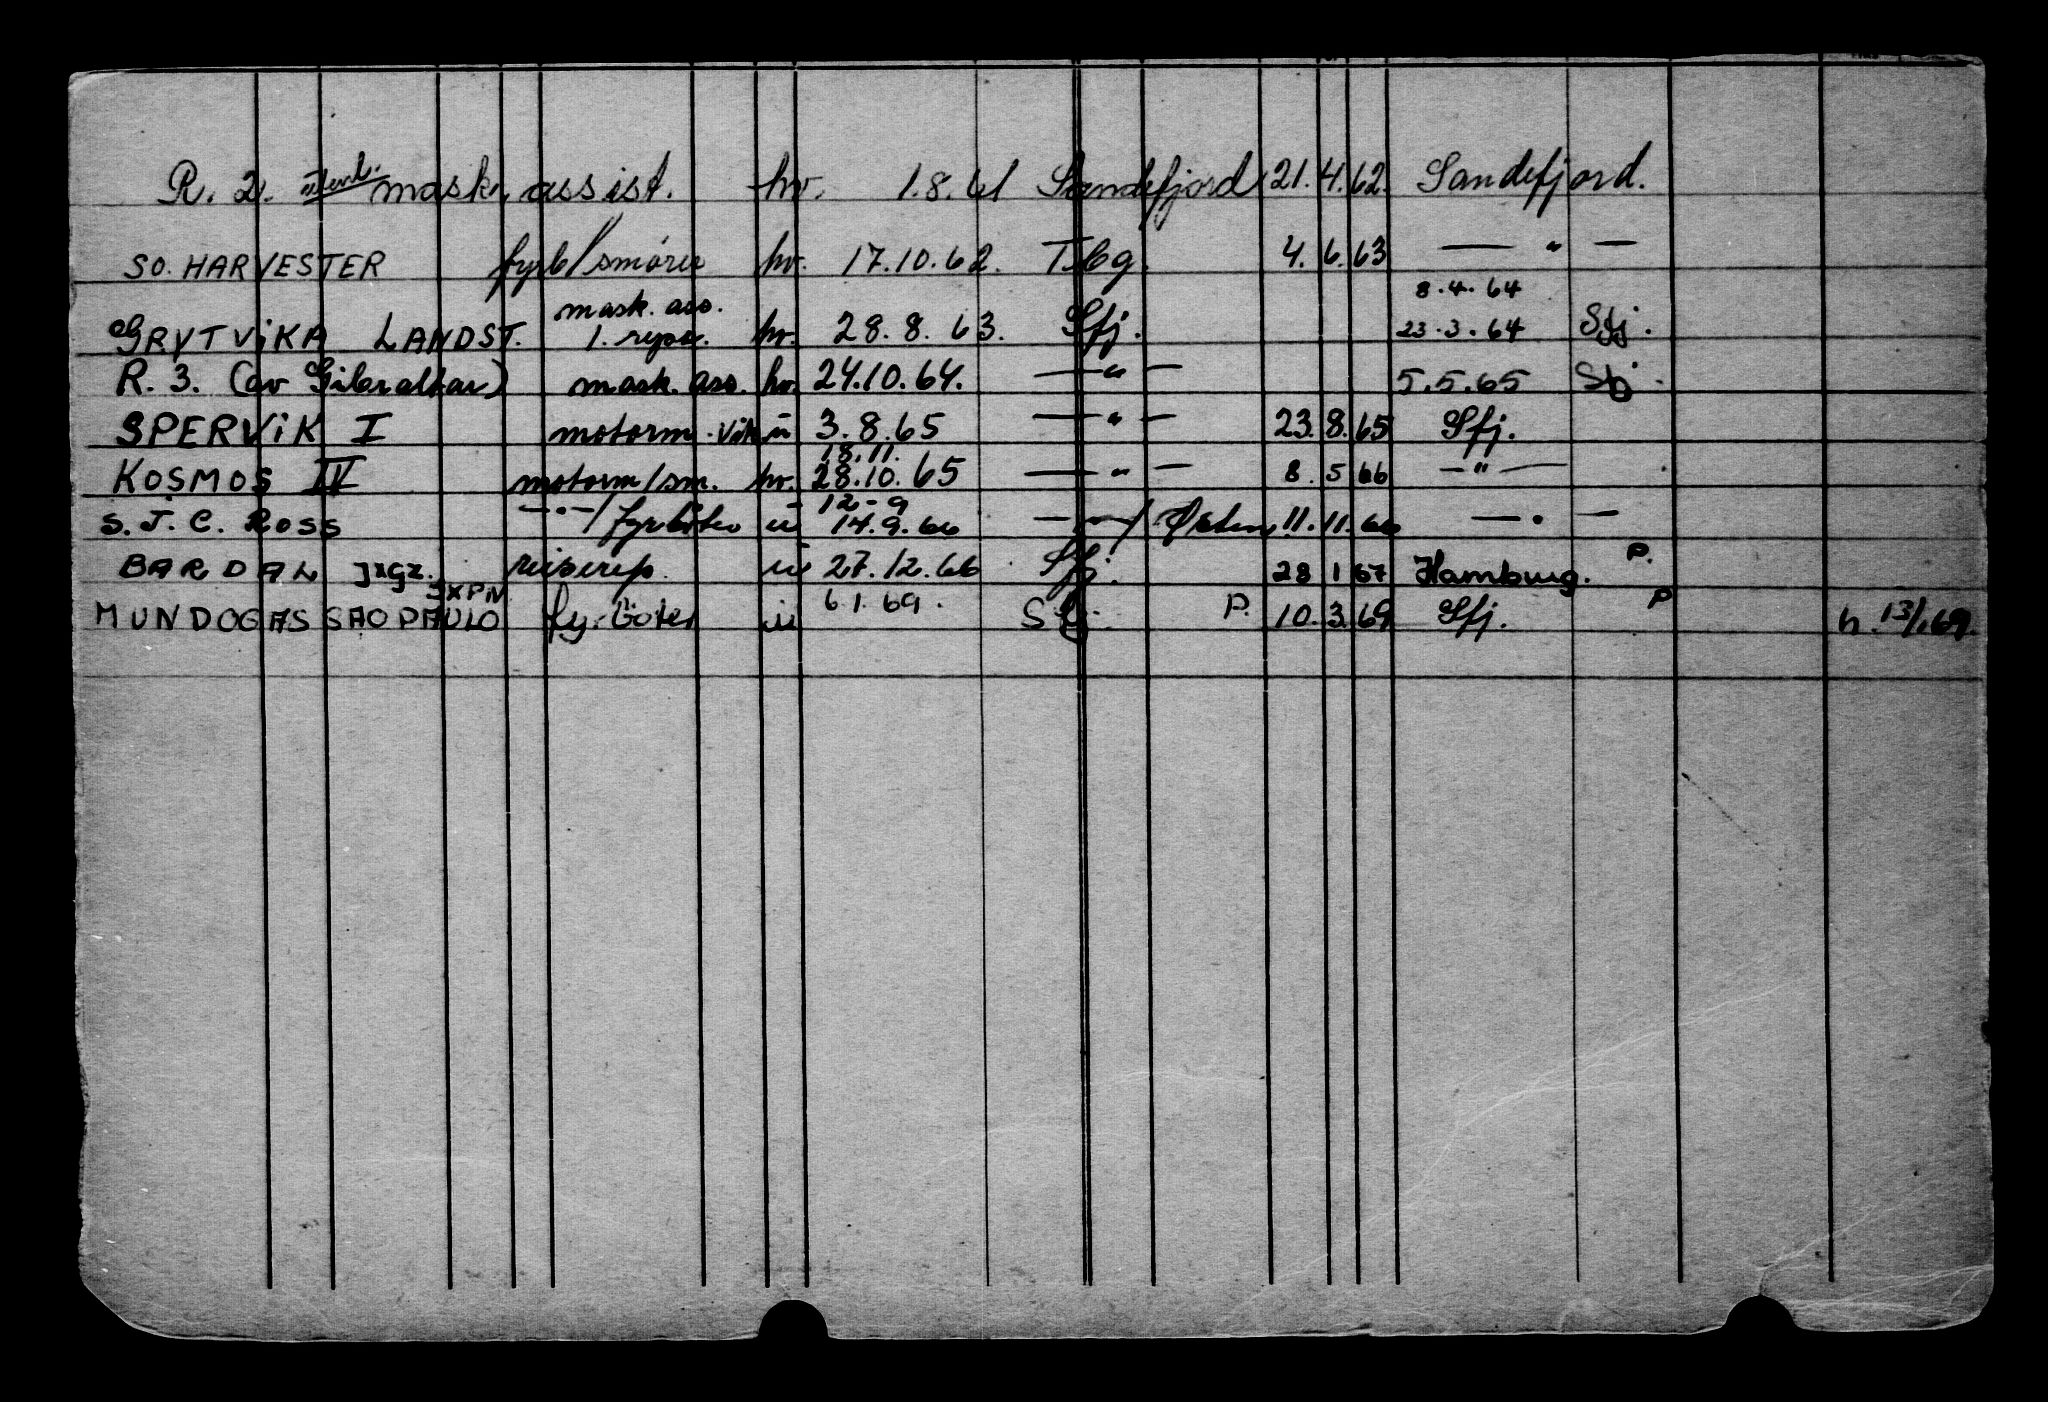 R. 2. mask. assist. hv. 1.8.61 Sandefjord 21. 4. 62. Sandefjord.
SO. HARVESTER fyrb/smører hv. 17.10.62. T.bg. 4. 6. 63 — " —
mask. ass. 8.4.64
GRYTVIKA LANDST. 1. rep. hv. 28.8.63. Sfj. 23.3.64 Sfj.
R. 3. (av Gibraltar) mask. ass. hv. 24.10.64. — " — 5.5.65 Sfj.
SPERVIK I motorm. vik u 3.8.65 — " — 23. 8. 65 Sfj.
18.11.
KOSMOS IV motorm/sm. hv. 28.10.65 — " — 8. 5 66 — " —
12-9
S. J. C. ROSS — " —/fyrbøter u 14.9.66 — " —/Østen 11. 11. 66 — " —
BARDAL JXGZ. reiserep. u 27.12.66 Sfj. 28 1 67 Hamburg. P.
JXPN 6.1.69.
MUNDOGAS SAO PAULO fyrbøter u Sfj. P. 10. 3. 69 Sfj. P h. 13/1.69.